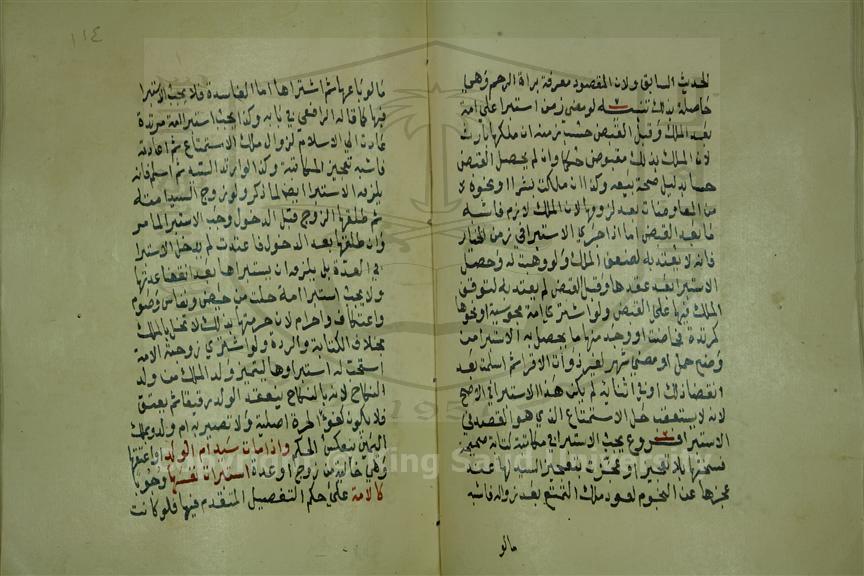 الحديث السابق ولان المقصود معرفة براة الرحم وهي
حاصلة بذلك تنبيه لو مضى زمن استبرا على امة
بعد الملك وقبل القبض حسب زمنه ان ملكها بارث
لان الملك بذلك مقبوض حكما وان لم يحصل القبض
حسا بدليل صحة بيعه وكذا ان ملكت بشرا ونحوه
من المعاوضات بعد لزومها لان الملك لازم فاشبه
ما بعد القبض اما اذا جرى الاستبرا في زمن الخيار
فانه لا يعتد به لضعف الملك ولو وهبت له وحصل
الاستبرا بعد عقدها وقبل القبض لم يعتد به لتوقف
الملك فيها على القبض ولو اشترى امة مجوسية او نحوها
كمرتدة فحاضت او وجد منها ما يحصل به الاستبرا من
وضع حمل او مضى شهر لغير ذوات الاقرا ثم اسلمت بعد
انقضا ذلك او في اثنايه لم يكف هذا الاستبرا في الاصح
لانه لا يستعقب حل الاستمتاع الذي هو القصد في
الاستبرا فروع يجب الاستبرا في مكاتبة كتابة صحيحة
فسختها بلا تعجيز او عجزت بتعجيز السيد لها عند
عجزها عن النجوم لعود ملك التمتع بعد زواله فاشبه
مالو
١١٤
ما لو باعها ثم اشتراها اما الفاسدة فلا يجب الاستبرا
فيها كما قاله الرافعي في بابه وكذا يجب استبرا امة مرتدة
عادت الى الاسلام لزوال ملك الاستمتاع ثم اعادته
فاشبه تعجيز المكاتبة وكذا لو ارتد السيد ثم اسلم فانه
يلزمه الاستبرا ايضا لما ذكر ولو زوج السيد امته
ثم طلقها الزوج قبل الدخول وجب الاستبرا لما مر
وان طلقها بعد الدخول فاعتدت لم يدخل الاستبرا
في العدة بل يلزمه ان يستبراها بعد انقضا عدتها
ولا يجب استبرا امة حلت من حيض ونفاس وصوم
واعتكاف واحرام لان حرمتها بذلك لا تخل بالملك
بخلاف الكتابة والردة ولو اشترى زوجته الامة
استحب له استبراوها لتمييز ولد الملك من ولد
النكاح لانه بالنكاح ينعقد الولد رقيقا ثم يعتق
فلا يكون كفؤا لحرة اصلية ولا تصير به ام ولد وبملك
اليمين ينعكس الحكم واذا مات سيد ام الولد او اعتقها
وهي خالية من زوج او عدة استبرات نفسها وجوبا
كالامة على حكم التفصيل المتقدم فيها فلو كانت
Copyright © King Saud University
1957